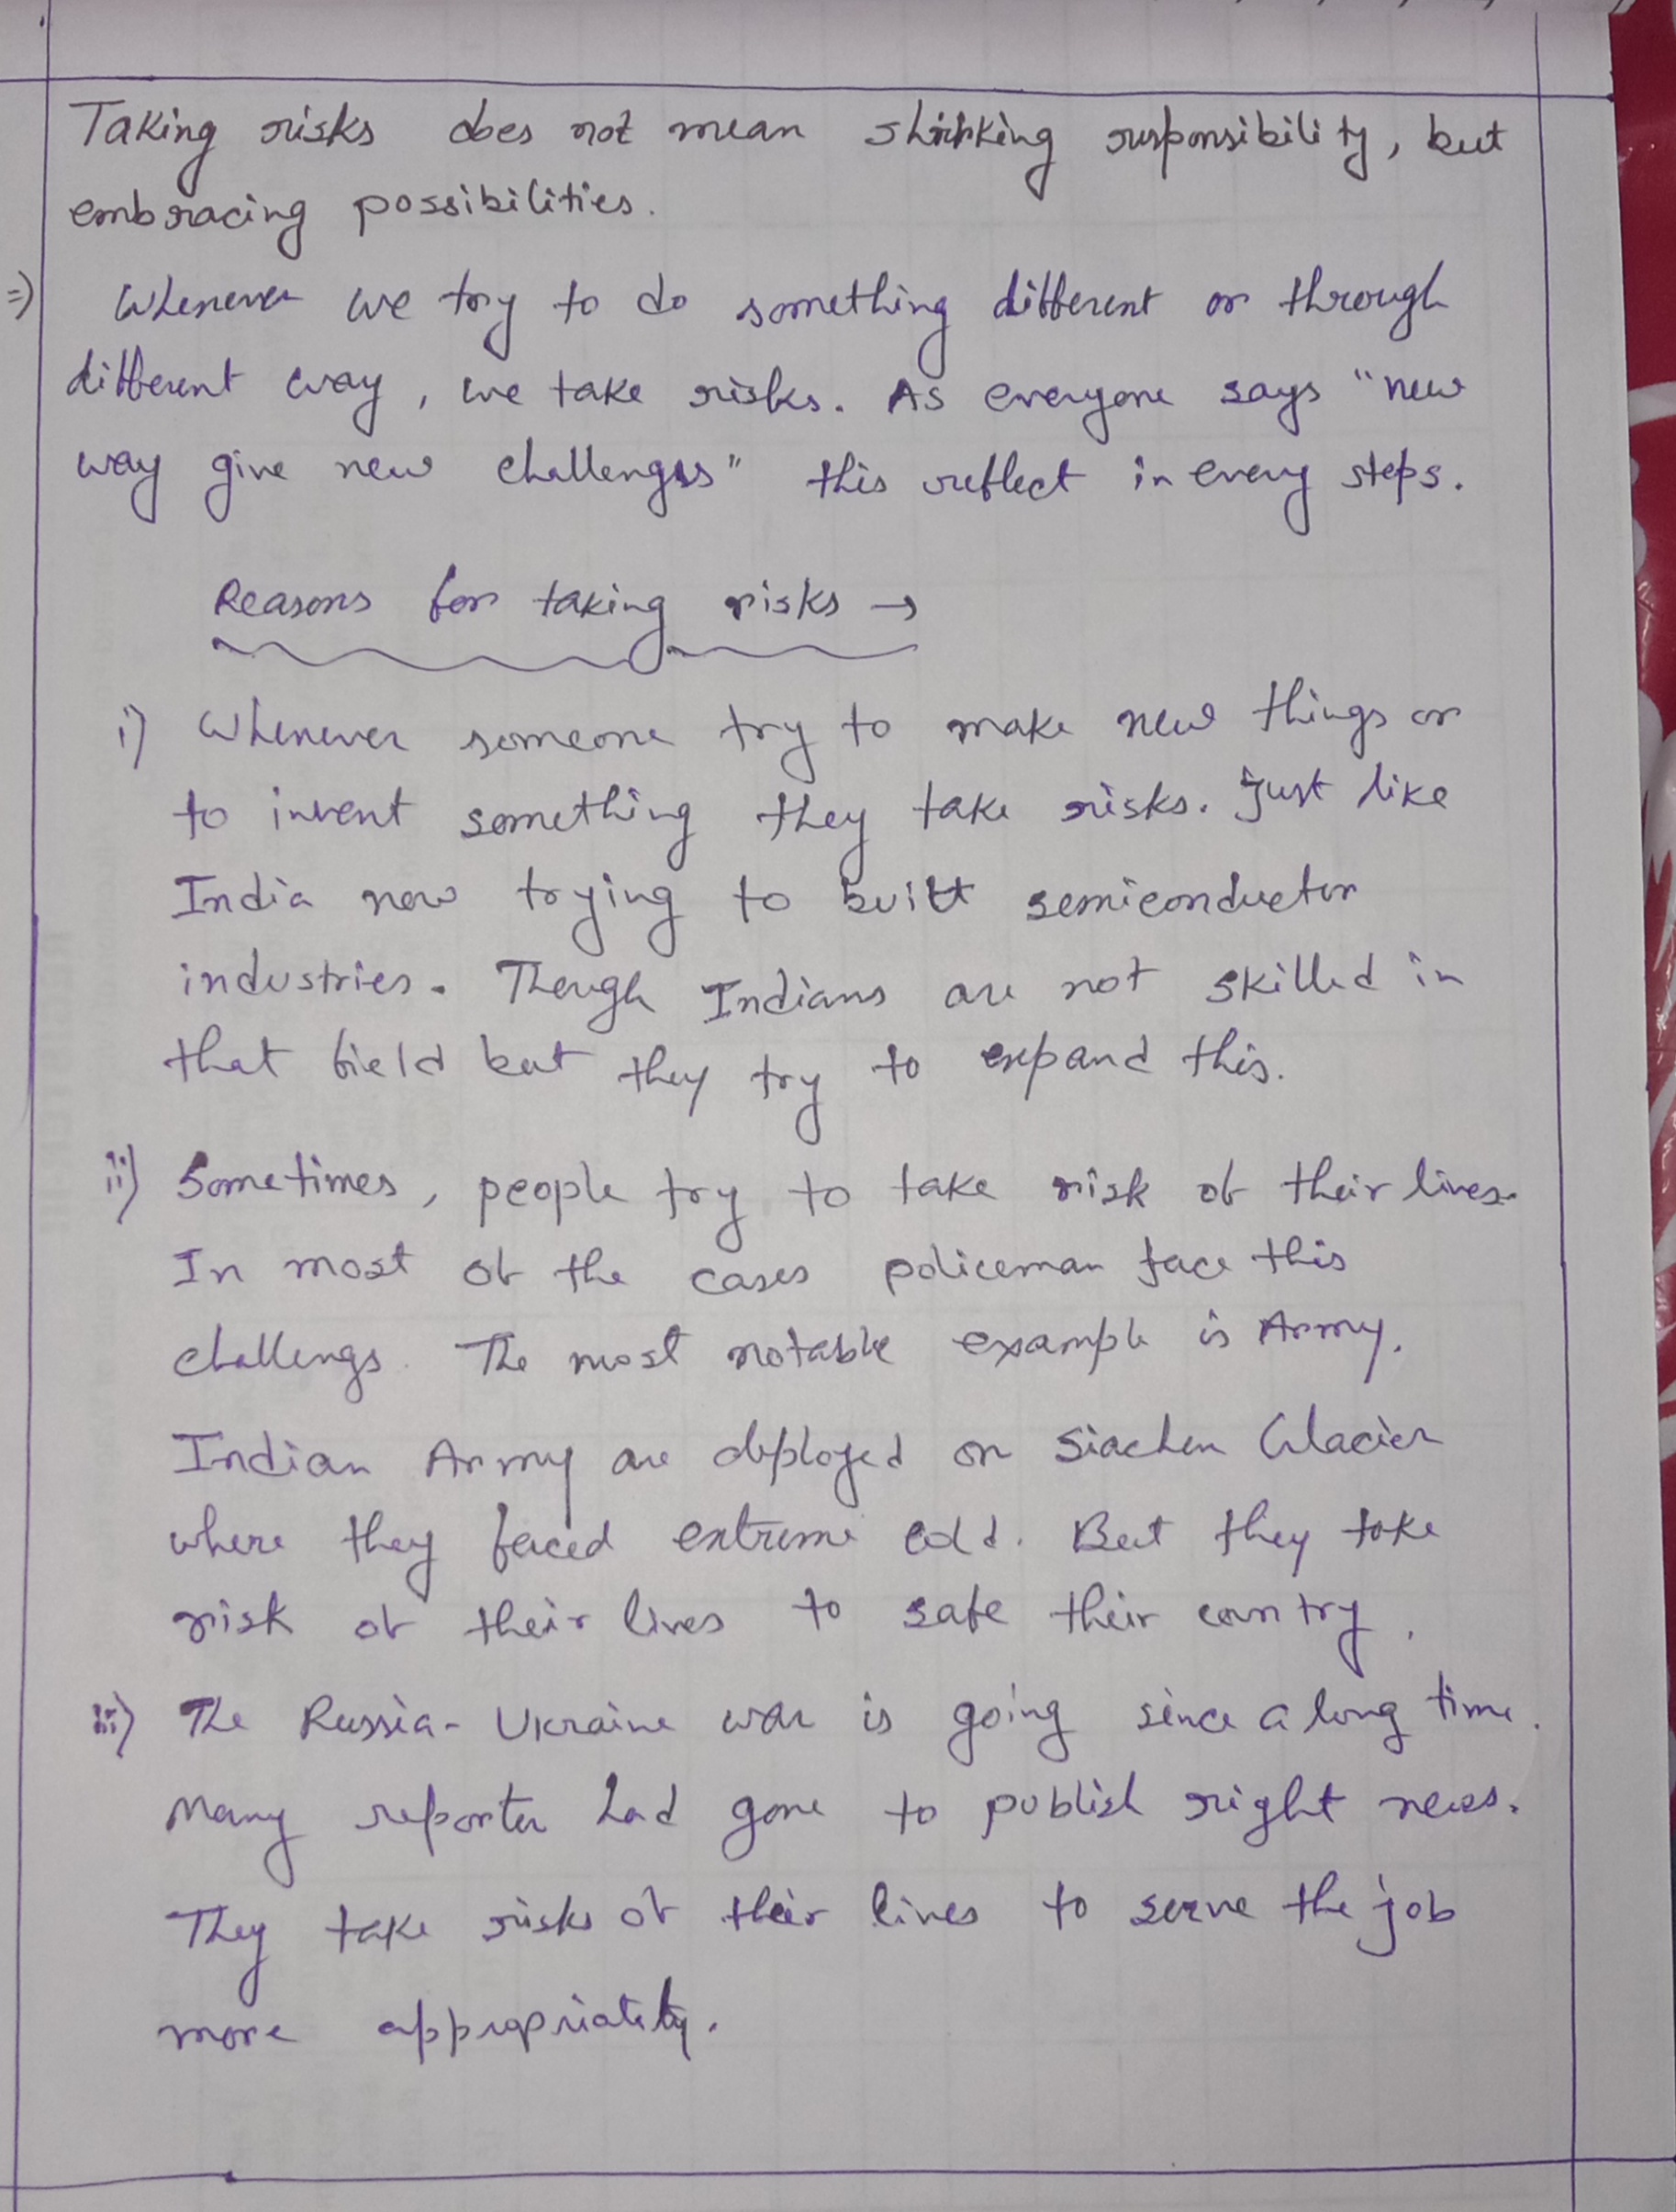 Taking risks does not mean shirking responsibility, but
embracing possibilities.
=> Whenever we try to do something different or through
different way, we take risks. As everyone says "new
way give new challenges" this reflect in every steps.
Reasons for taking risks →
i) Whenever someone try to make new things or
to invent something they take risks. Just like
India now trying to built semiconductor
industries. Though Indians are not skilled in
that field but they try to expand this.
ii) Sometimes, people try to take risk of their lives.
In most of the cases policeman face this
challengs. The most notable example is Army.
Indian Army are deployed on Siachen Glacier
where they faced extreme cold. But they take
risk of their lives to safe their country.
iii) The Russia-Ukraine war is going since a long time.
Many reporter had gone to publish right news.
They take risks of their lives to serve the job
more appropriately.